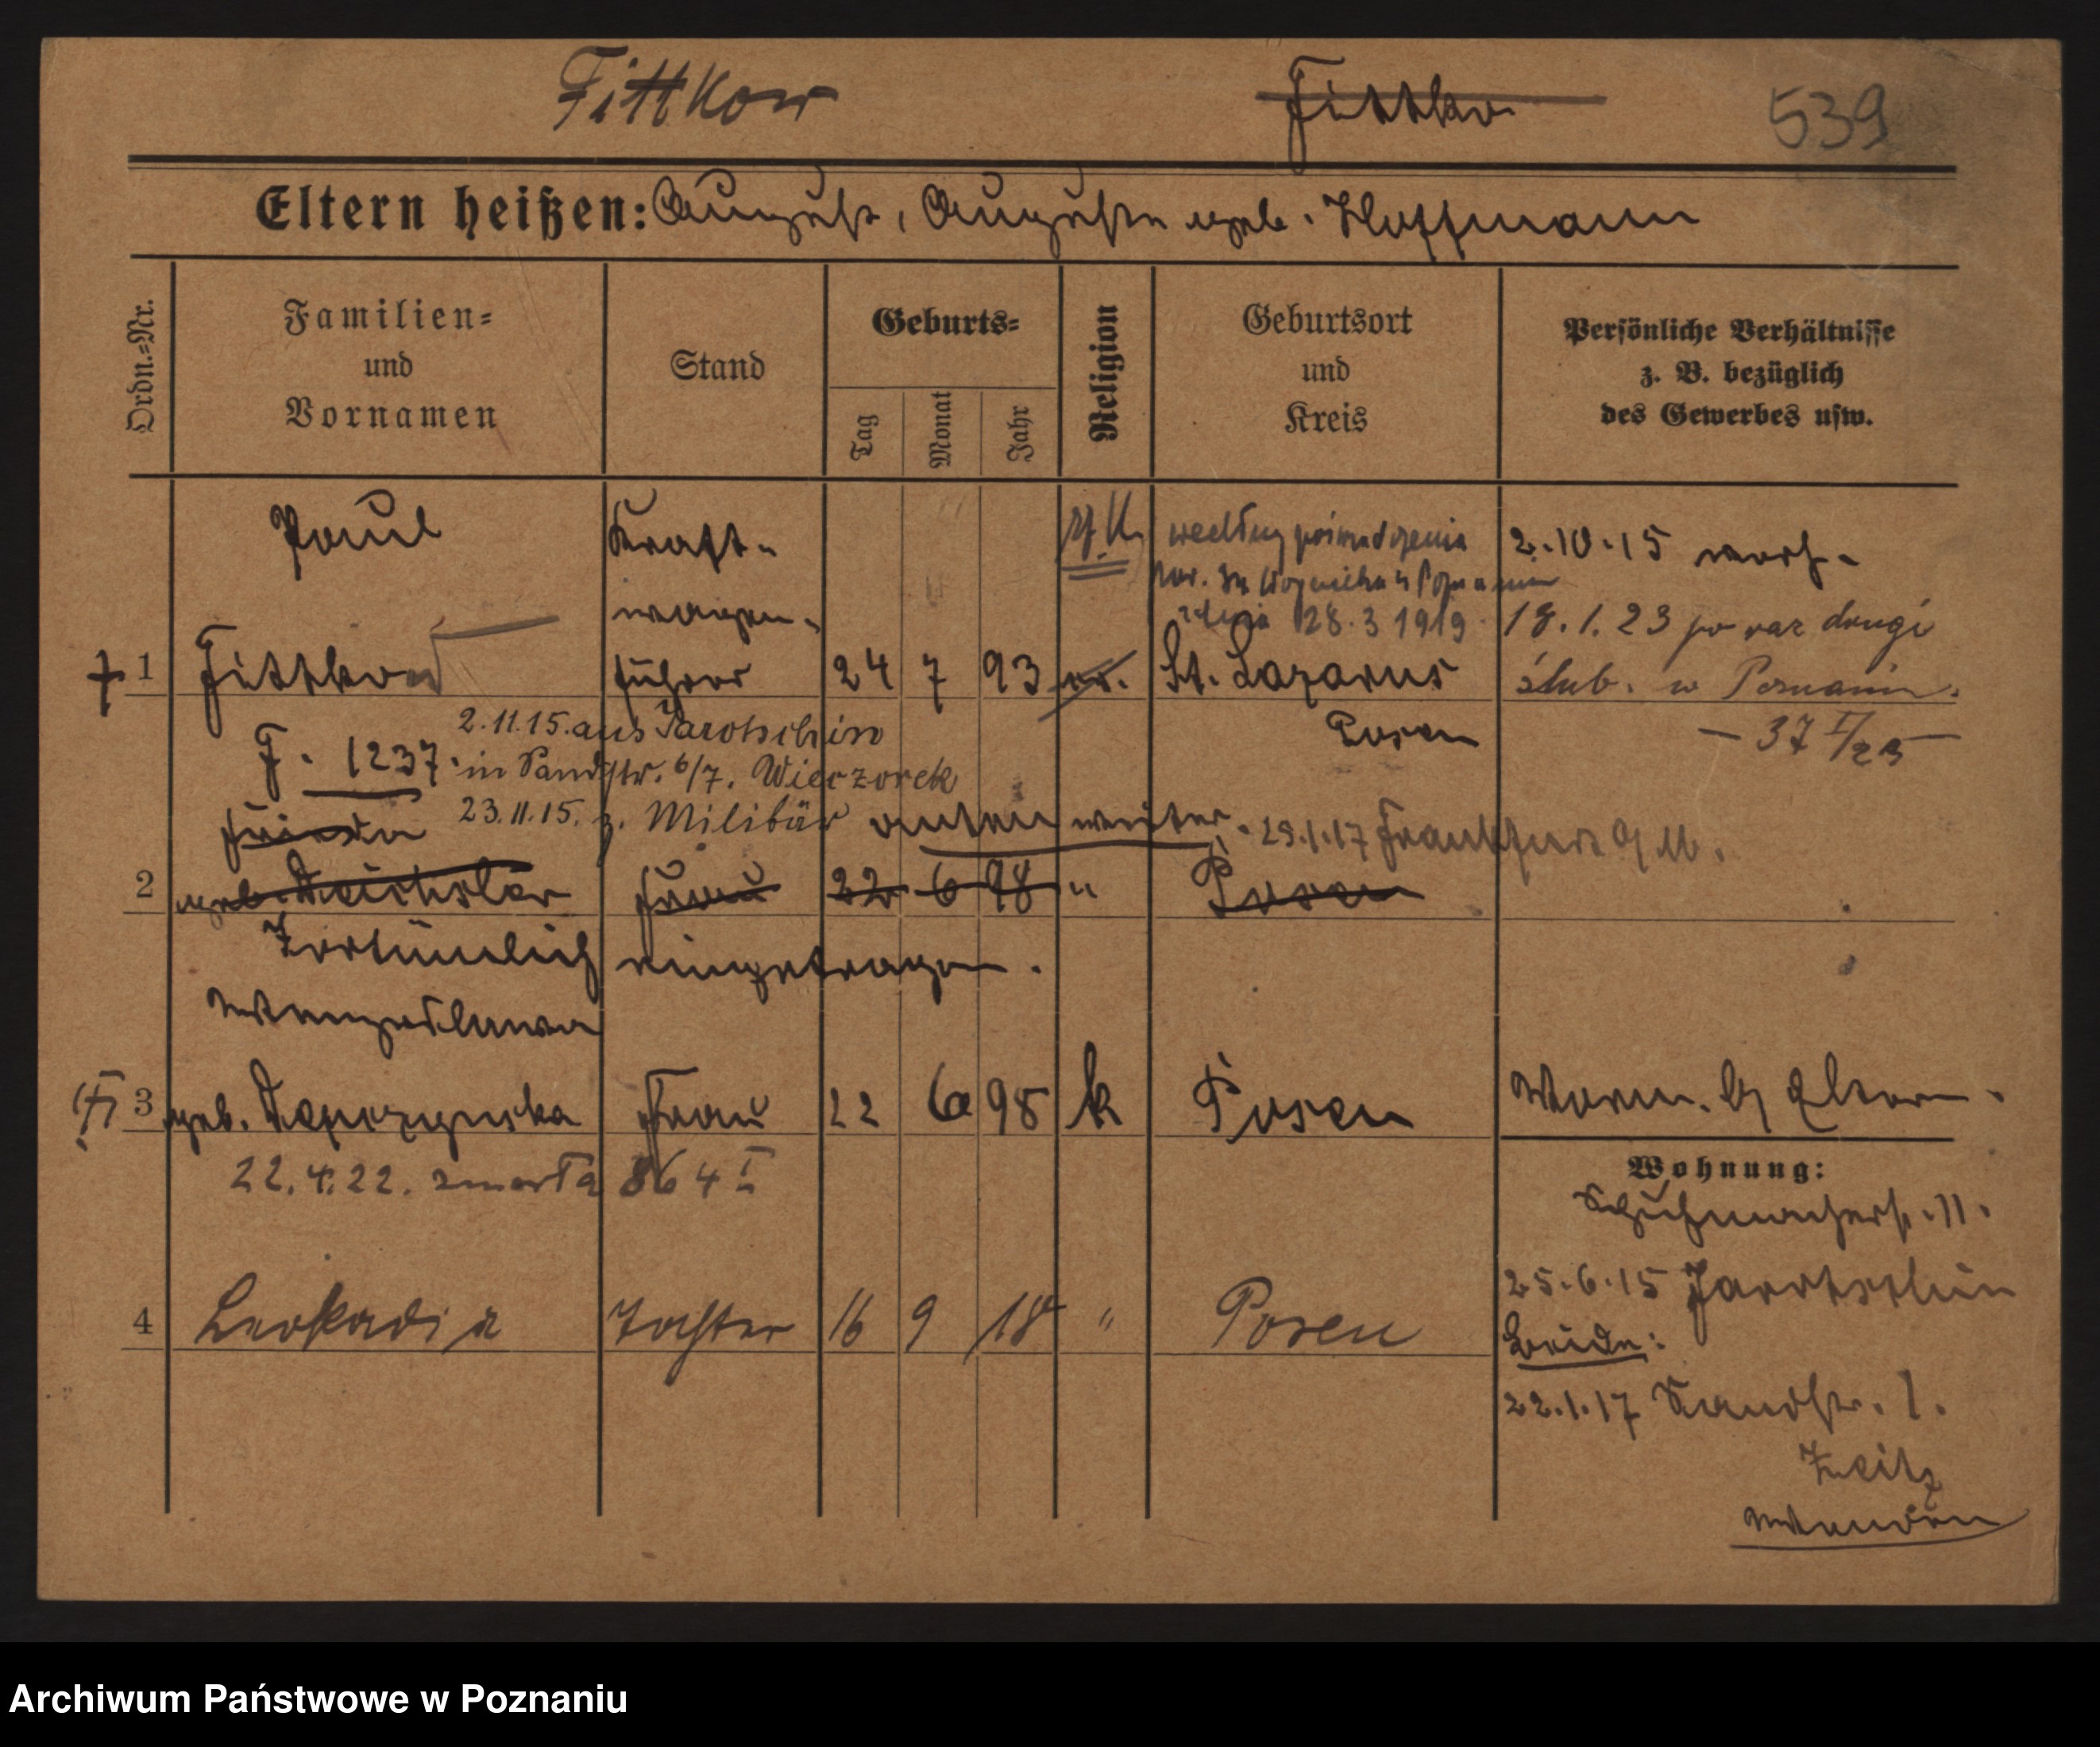 Fittkow Fittko 539
Eltern heißen: August, Auguste geb. Hoffmann
Ordn.=Nr.
Familien=
und
Vornamen
Stand
Geburts=
Tag
Monat
Jahr
Religion
Geburtsort
und
Kreis
Persönliche Verhältnisse
z. B. bezüglich
des Gewerbes usw.
Paul
Kraft-
wagen-
1 Fittkow führer 24 7 93 ev. St. Lazarus
Posen
rz. K.
według poświadczenia
par.
28.3 1919
2.10.15 verh.
18.1.23 po raz drugi
ślub. w Poznaniu.
— 37 I/23 —
F. 1237.
2.11.15. aus Jarotschin
in Sandstr. 6/7. Wieczorek
23.11.15. z. Militär unten weiter. 29.1.17 Frankfurt a M.
Frieda
2 geb. Deichsler Frau 22 6 98 " Posen
Irrtümlich eingetragen.
Wenzeslawa
3 geb. Frau 22 6 98 k Posen
Wohn. b Eltern.
22.4.22. zmarła 864 I
Wohnung:
Schuhmacherst. 11.
25.6.15 Jarotschin
4 Leokadia Tochter 16 9 18 " Posen
Beide:
22.1.17 Sandstr. 1.
Zeitz
wenden
Archiwum Państwowe w Poznaniu